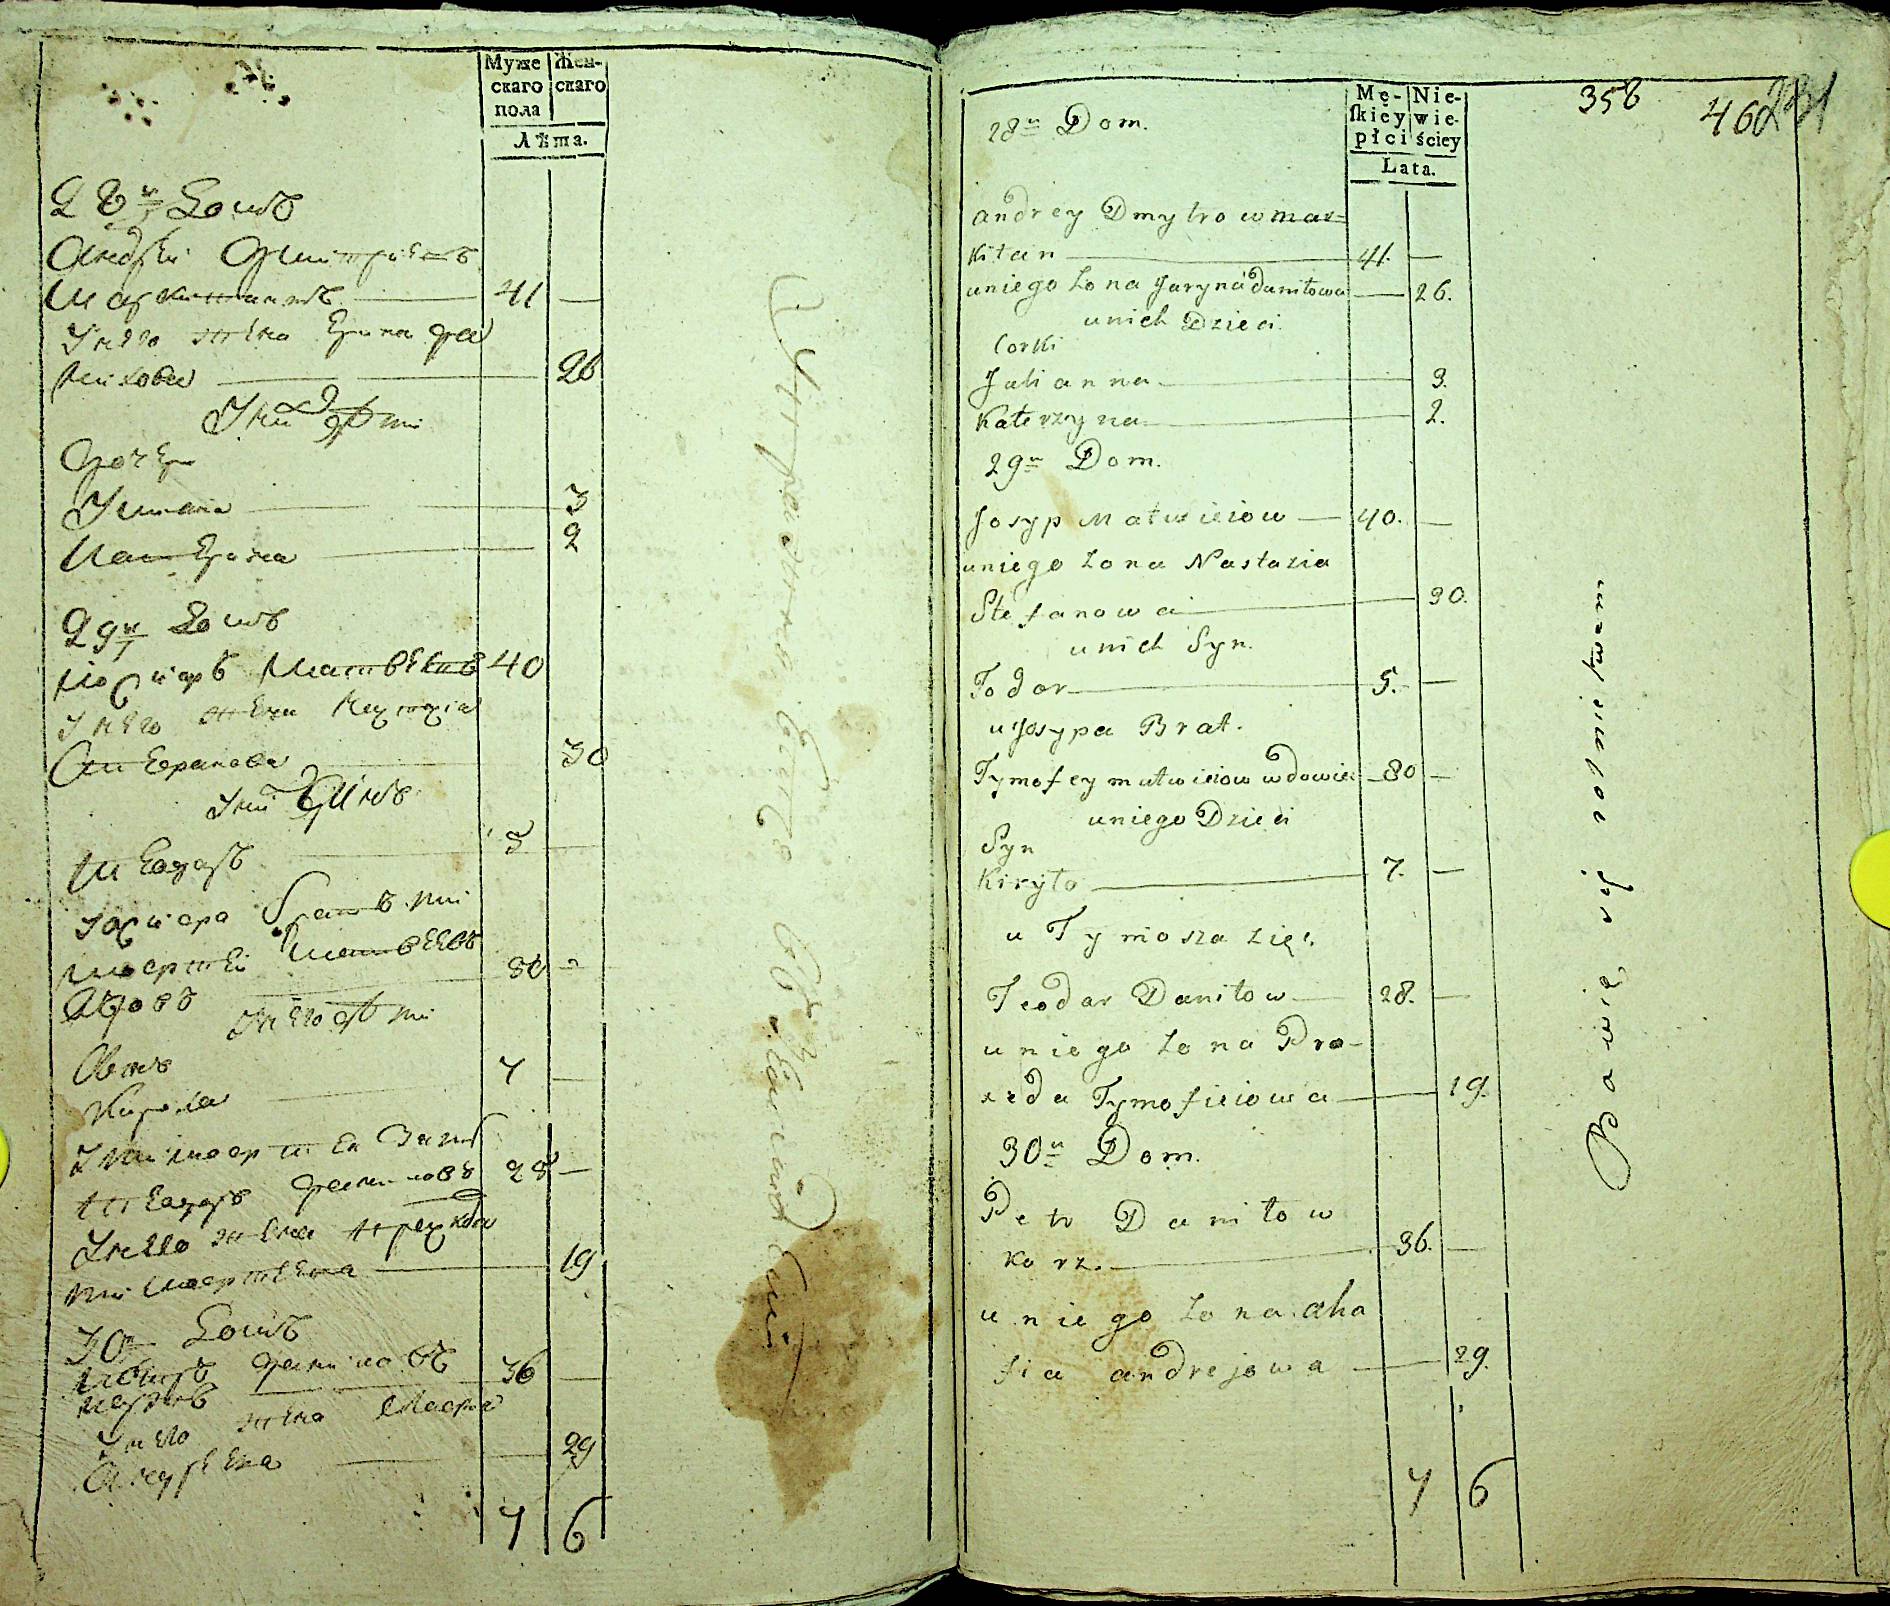 Муже
скаго
пола
Жен-
скаго
Лѣта.
28й Домъ
Андрей Дмитріевъ
Маркитантъ 41 —
У него жена Ерина Да
нилова 26
У них дѣти
Дочери
Улиана 3
Катерина 2
29й Домъ
Іосипъ Матвѣевъ 40
У него жена Настасіа
Стефанова 30
У них сынъ
Теодоръ 5 —
Іосипа братъ
Тимофей Матвѣевъ
вдовъ 80 —
У него дѣти
Сынъ
Кирила 7 —
У Тимофея зять
Теодоръ Даниловъ 28 —
У него жена
Тимофеева 19
30й Домъ
Петръ Даниловъ
Коржъ 36 —
У него жена Агафіа
Андреева 29
7 6
358
460
28й Dom.
Mę-
skiey
płci
Nie-
wie-
ściey
Lata.
Andrey Dmytrow mar=
kitan 41. —
u niego Żona Jaryna Daniłowa — 26.
u nich Dzieci
Corki
Julianna 3.
Katerzyna 2.
29й Dom.
Josyp Matwieiow — 40. —
u niego Żona Nastazia
Stefanowa 30.
u nich Syn.
Todor 5. —
u Josypa Brat.
Tymofey Matwieiow wdowiec 80 —
u niego Dzieci
Syn
Kiryło 7. —
u Tymosza Zięć.
Teodor Daniłow 28. —
u niego Żona Pra-
xeda Tymofieiowa 19.
30й Dom.
Petr Daniłow
Korz. 36. —
u niego Żona Aha
fia Andrejowa 29.
7 6
Bawią się rolnictwem